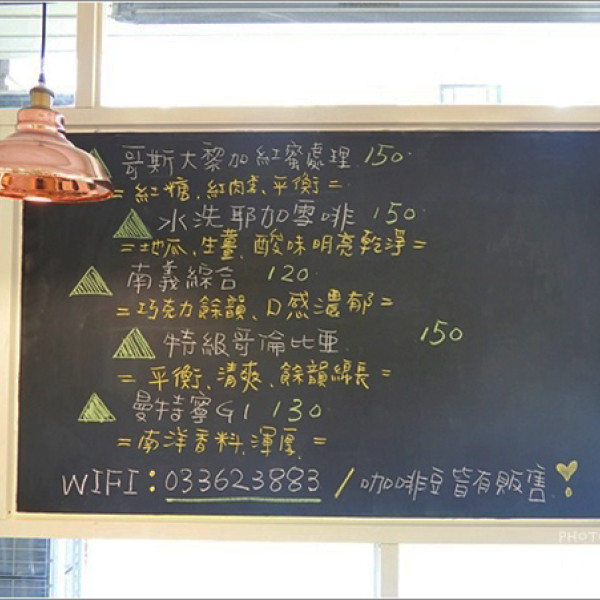 哥斯大黎加紅蜜處理 150
=紅糖、紅肉李、平衡=
水洗耶加雪啡 150
=地瓜、生薑、酸味明亮乾淨=
南義綜合 120
=巧克力餘韻、口感濃郁=
特級哥倫比亞 150
=平衡、清爽、餘韻綿長=
曼特寧G1 130
=南洋香料、渾厚、=
WIFI:033623883 / 咖啡豆皆有販售
PHOTO